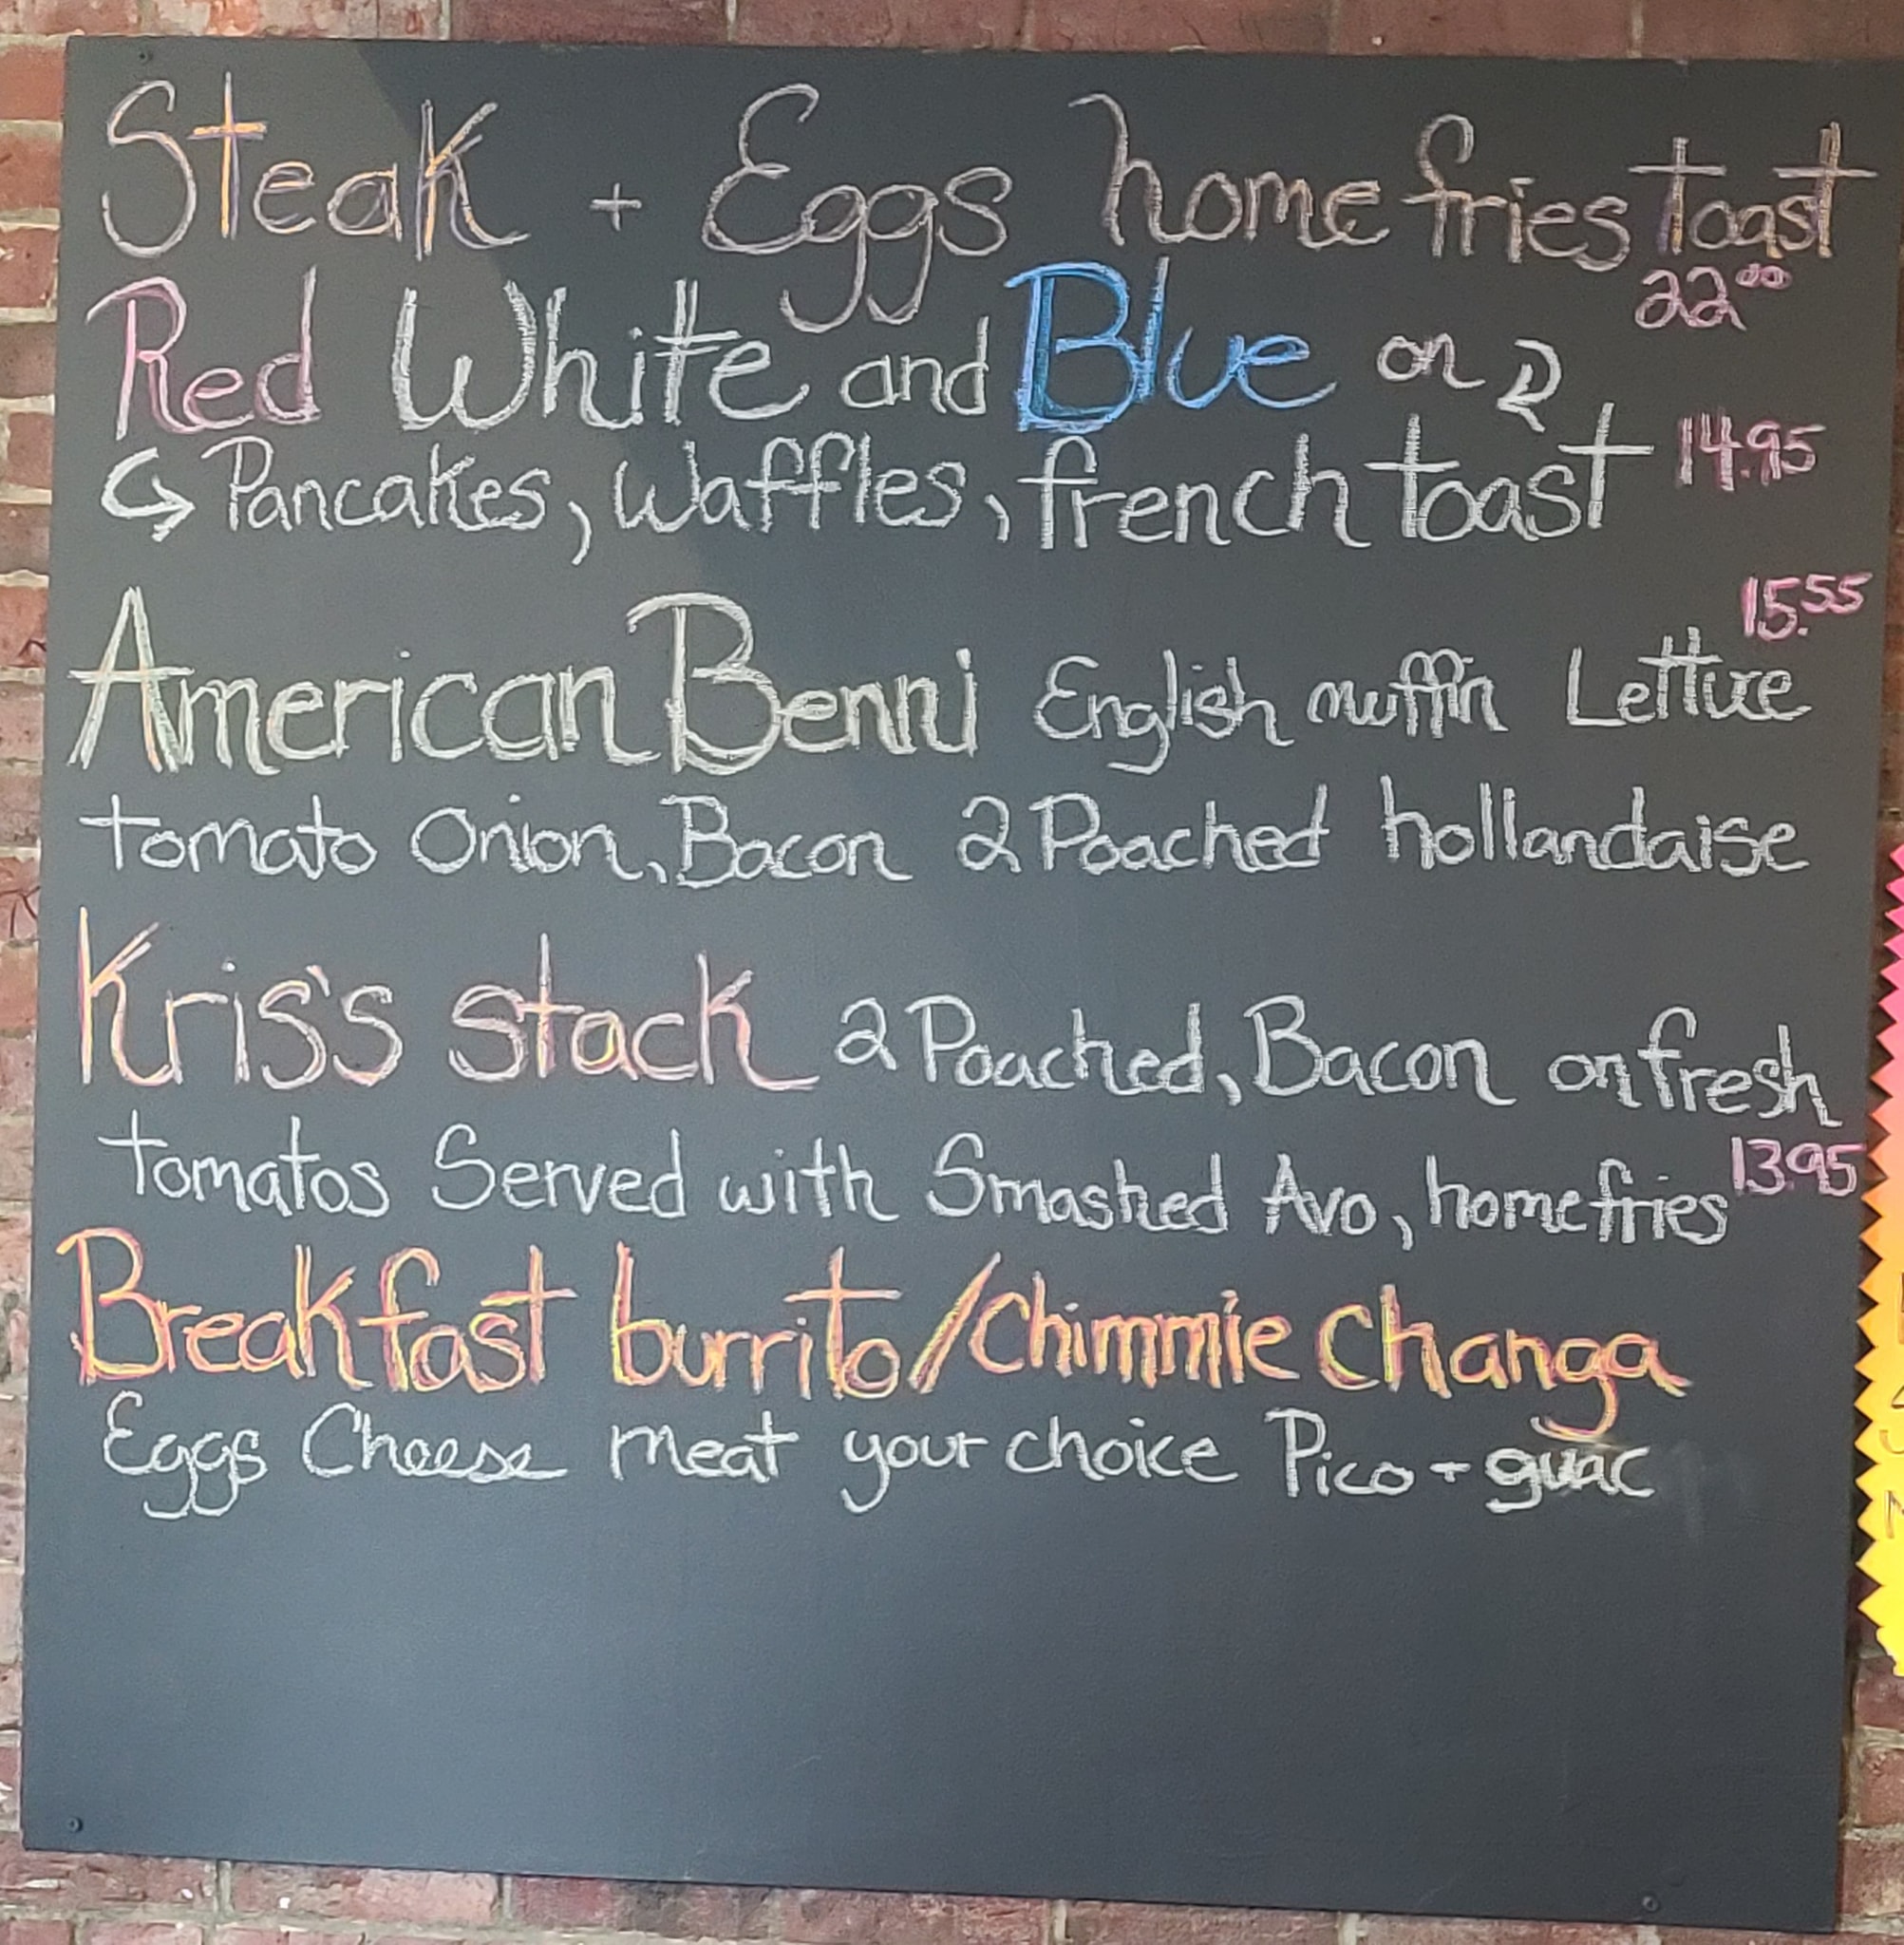 Steak + Eggs home fries toast
22⁰⁰
Red White and Blue on
Pancakes, Waffles, french toast 14.95
15.⁵⁵
American Benni English muffin Lettuce
tomato Onion, Bacon 2 Poached hollandaise
Kris's stack 2 Poached, Bacon on fresh
tomatos Served with Smashed Avo, home fries 13.95
Breakfast burrito/Chimmie Changa
Eggs Cheese meat your choice Pico + guac